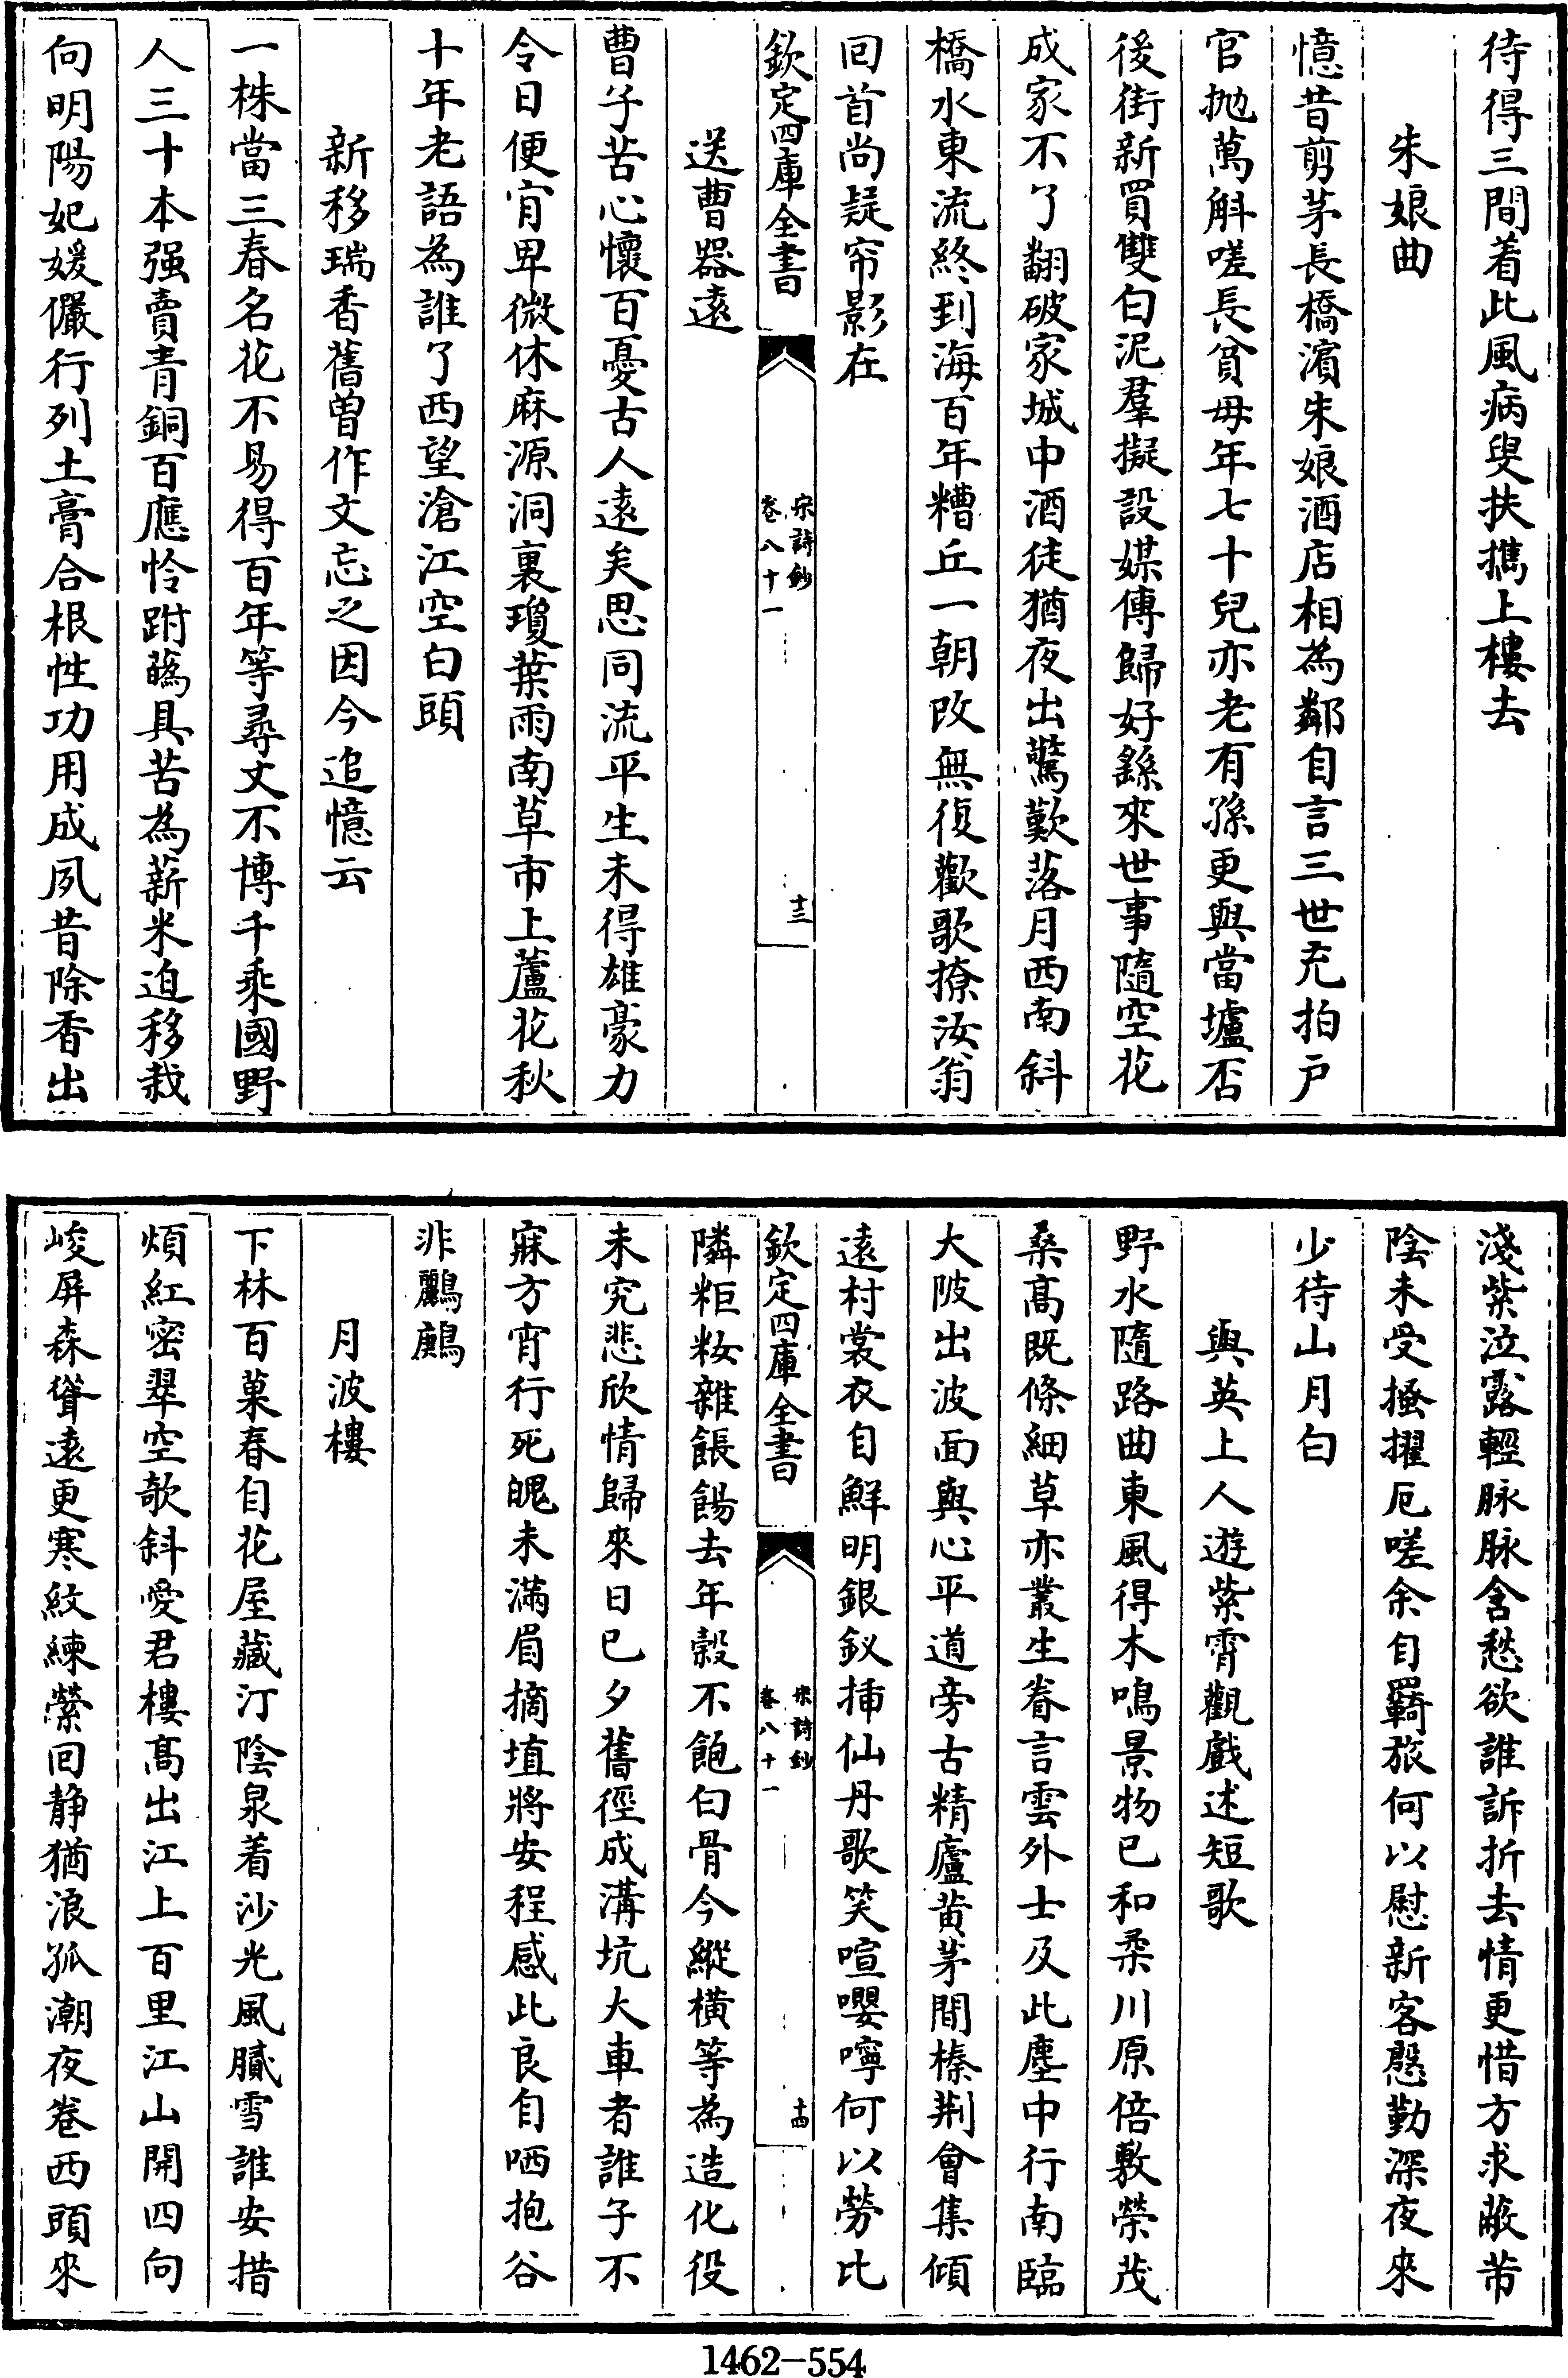 待得三間着此風病叟扶攜上樓去
朱娘曲
憶昔剪茅長橋濱朱娘酒店相為鄰自言三世充拍戶
官抛萬斛嗟長貧母年七十兒亦老有孫更與當壚否
後街新買雙白泥羣擬設媒傳歸好繇來世事隨空花
成家不了翻破家城中酒徒猶夜出驚歎落月西南斜
橋水東流終到海百年糟丘一朝改無復歡歌撩汝翁
回首尚疑帘影在
欽定四庫全書
宋詩鈔
卷八十一
十三
送曹器遠
曹子苦心懷百憂古人遠矣思同流平生未得雄豪力
令日便宵卑微休麻源洞裏瓊葉雨南草市上蘆花秋
十年老語為誰了西望滄江空白頭
新移瑞香舊曾作文忘之因今追憶云
一株當三春名花不易得百年等尋丈不博千乘國野
人三十本强賣青銅百應怜跗蕚具苦為薪米迫移栽
向明陽妃媛儼行列土膏合根性功用成夙昔除香出
淺紫泣露輕脉脉含愁欲誰訴折去情更惜方求蔽芾
陰未受搔擢厄嗟余自羇旅何以慰新客慇勤深夜來
少待山月白
與英上人遊紫霄觀戲述短歌
野水隨路曲東風得木鳴景物已和柔川原倍敷榮茂
桑髙既條細草亦叢生眷言雲外士及此塵中行南臨
大陂出波面與心平道旁古精廬黄茅間榛荆會集傾
遠村裳衣自鮮明銀釵挿仙丹歌笑喧嚶嚀何以勞比
欽定四庫全書
宋詩鈔
卷八十一
十四
隣粔籹雜餦餳去年榖不飽白骨今縱橫等為造化役
未究悲欣情歸來日已夕舊徑成溝坑大車者誰子不
寐方宵行死魄未滿眉摘埴將安程感此良自哂抱谷
非鸝鶊
月波樓
下林百菓春自花屋藏汀陰泉着沙光風膩雪誰安措
煩紅密翠空欹斜愛君樓髙出江上百里江山開四向
峻屏森聳遠更寒紋練縈回静猶浪孤潮夜卷西頭來
1462-554